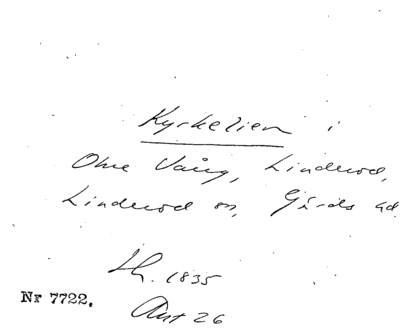 Kyrkelien i
Ohne Vång, Linderod,
Linderod sn, Gärds hd
Lh. 1835
Nr 7722.
Aut 26